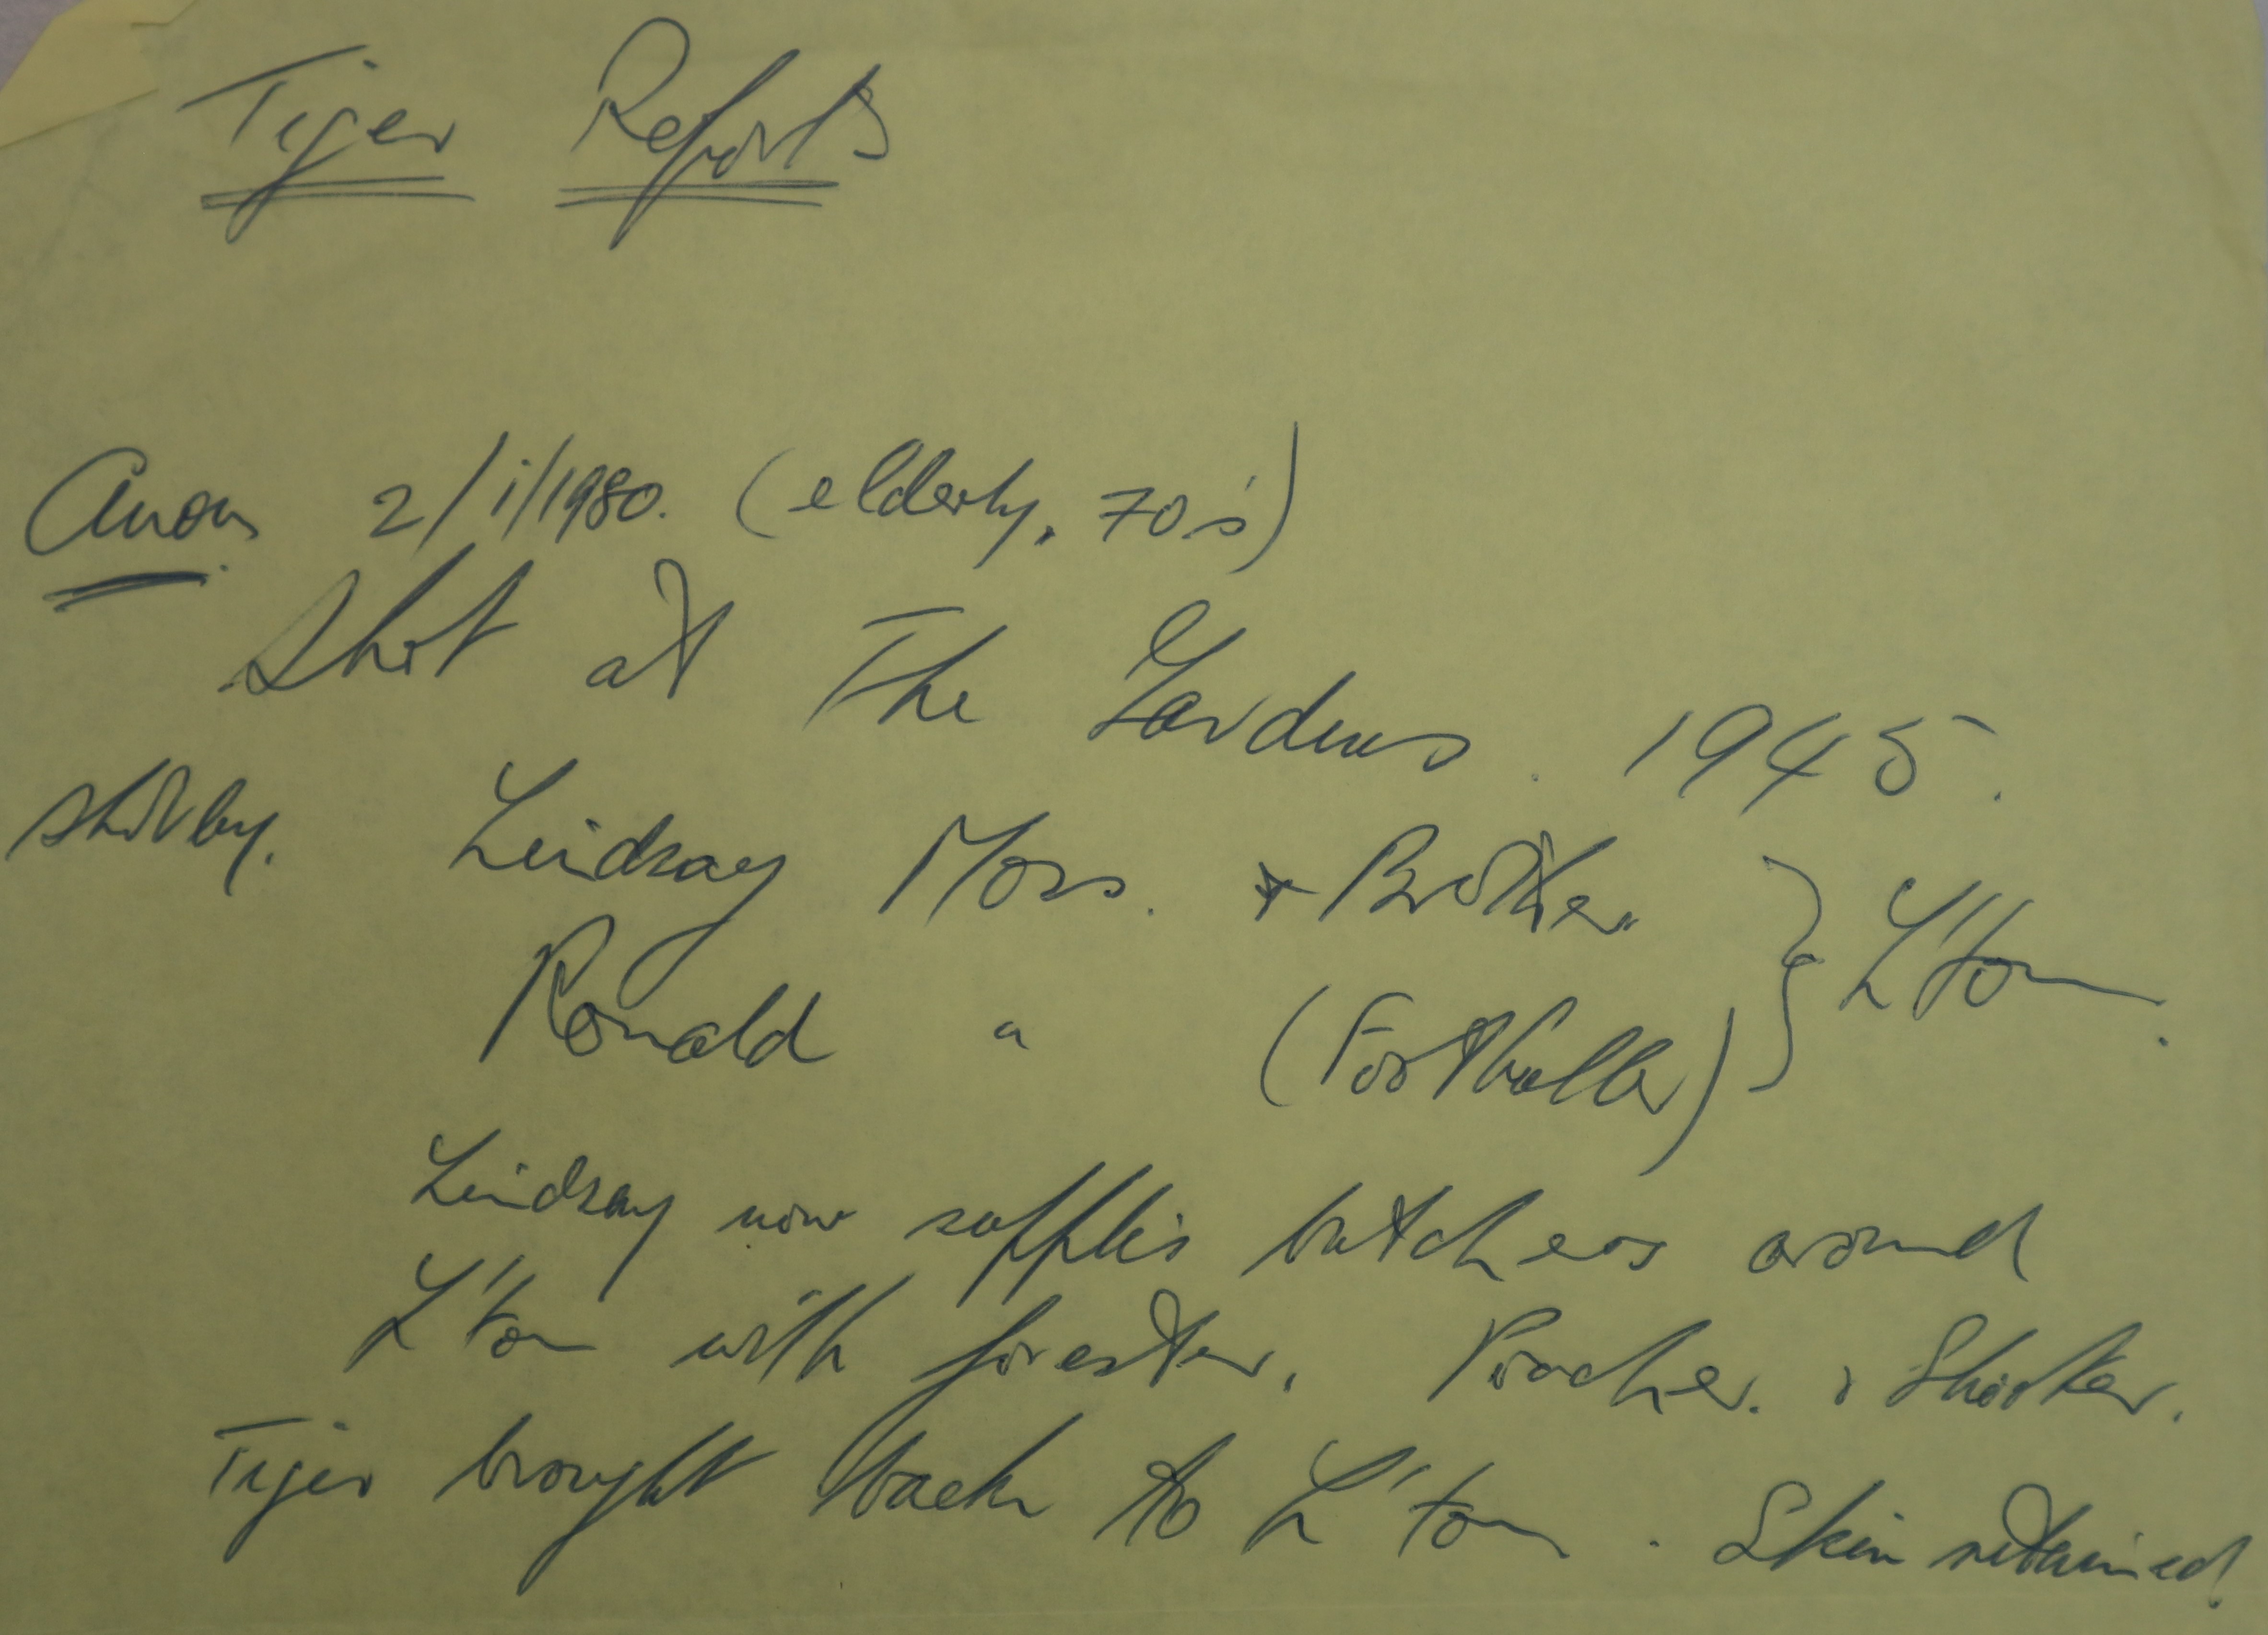 Tiger Reports
Anon. 2/1/1980. (elderly, 70's)
Shot at The Gardens. 1945.
shot by. Lindsay Moss. + Brother }
Ronald " (Footballer) } L'ton.
Lindsay now supplies butchers around
L'ton with forester. Poacher. & Shooter.
Tiger brought back to L'ton. Skin retained